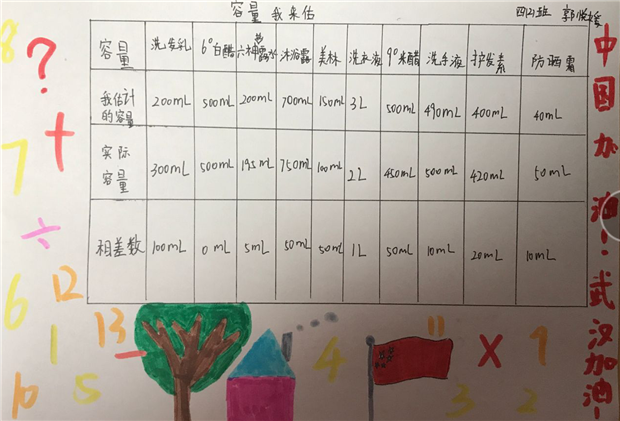 容量我来估
四(2)班 郭悦媛
容量 洗发乳 6°白醋 六神露水 沐浴露 美林 洗衣液 9°米醋 洗手液 护发素 防晒霜
花
我估计的容量 200mL 500mL 200mL 700mL 150mL 3L 500mL 490mL 400mL 40mL
实际容量 300mL 500mL 195mL 750mL 100mL 2L 450mL 500mL 420mL 50mL
相差数 100mL 0mL 5mL 50mL 50mL 1L 50mL 10mL 20mL 10mL
中国加油！武汉加油！
8
?
+
7
÷
6
12
1
13
−
10
5
4
11
×
9
3
2